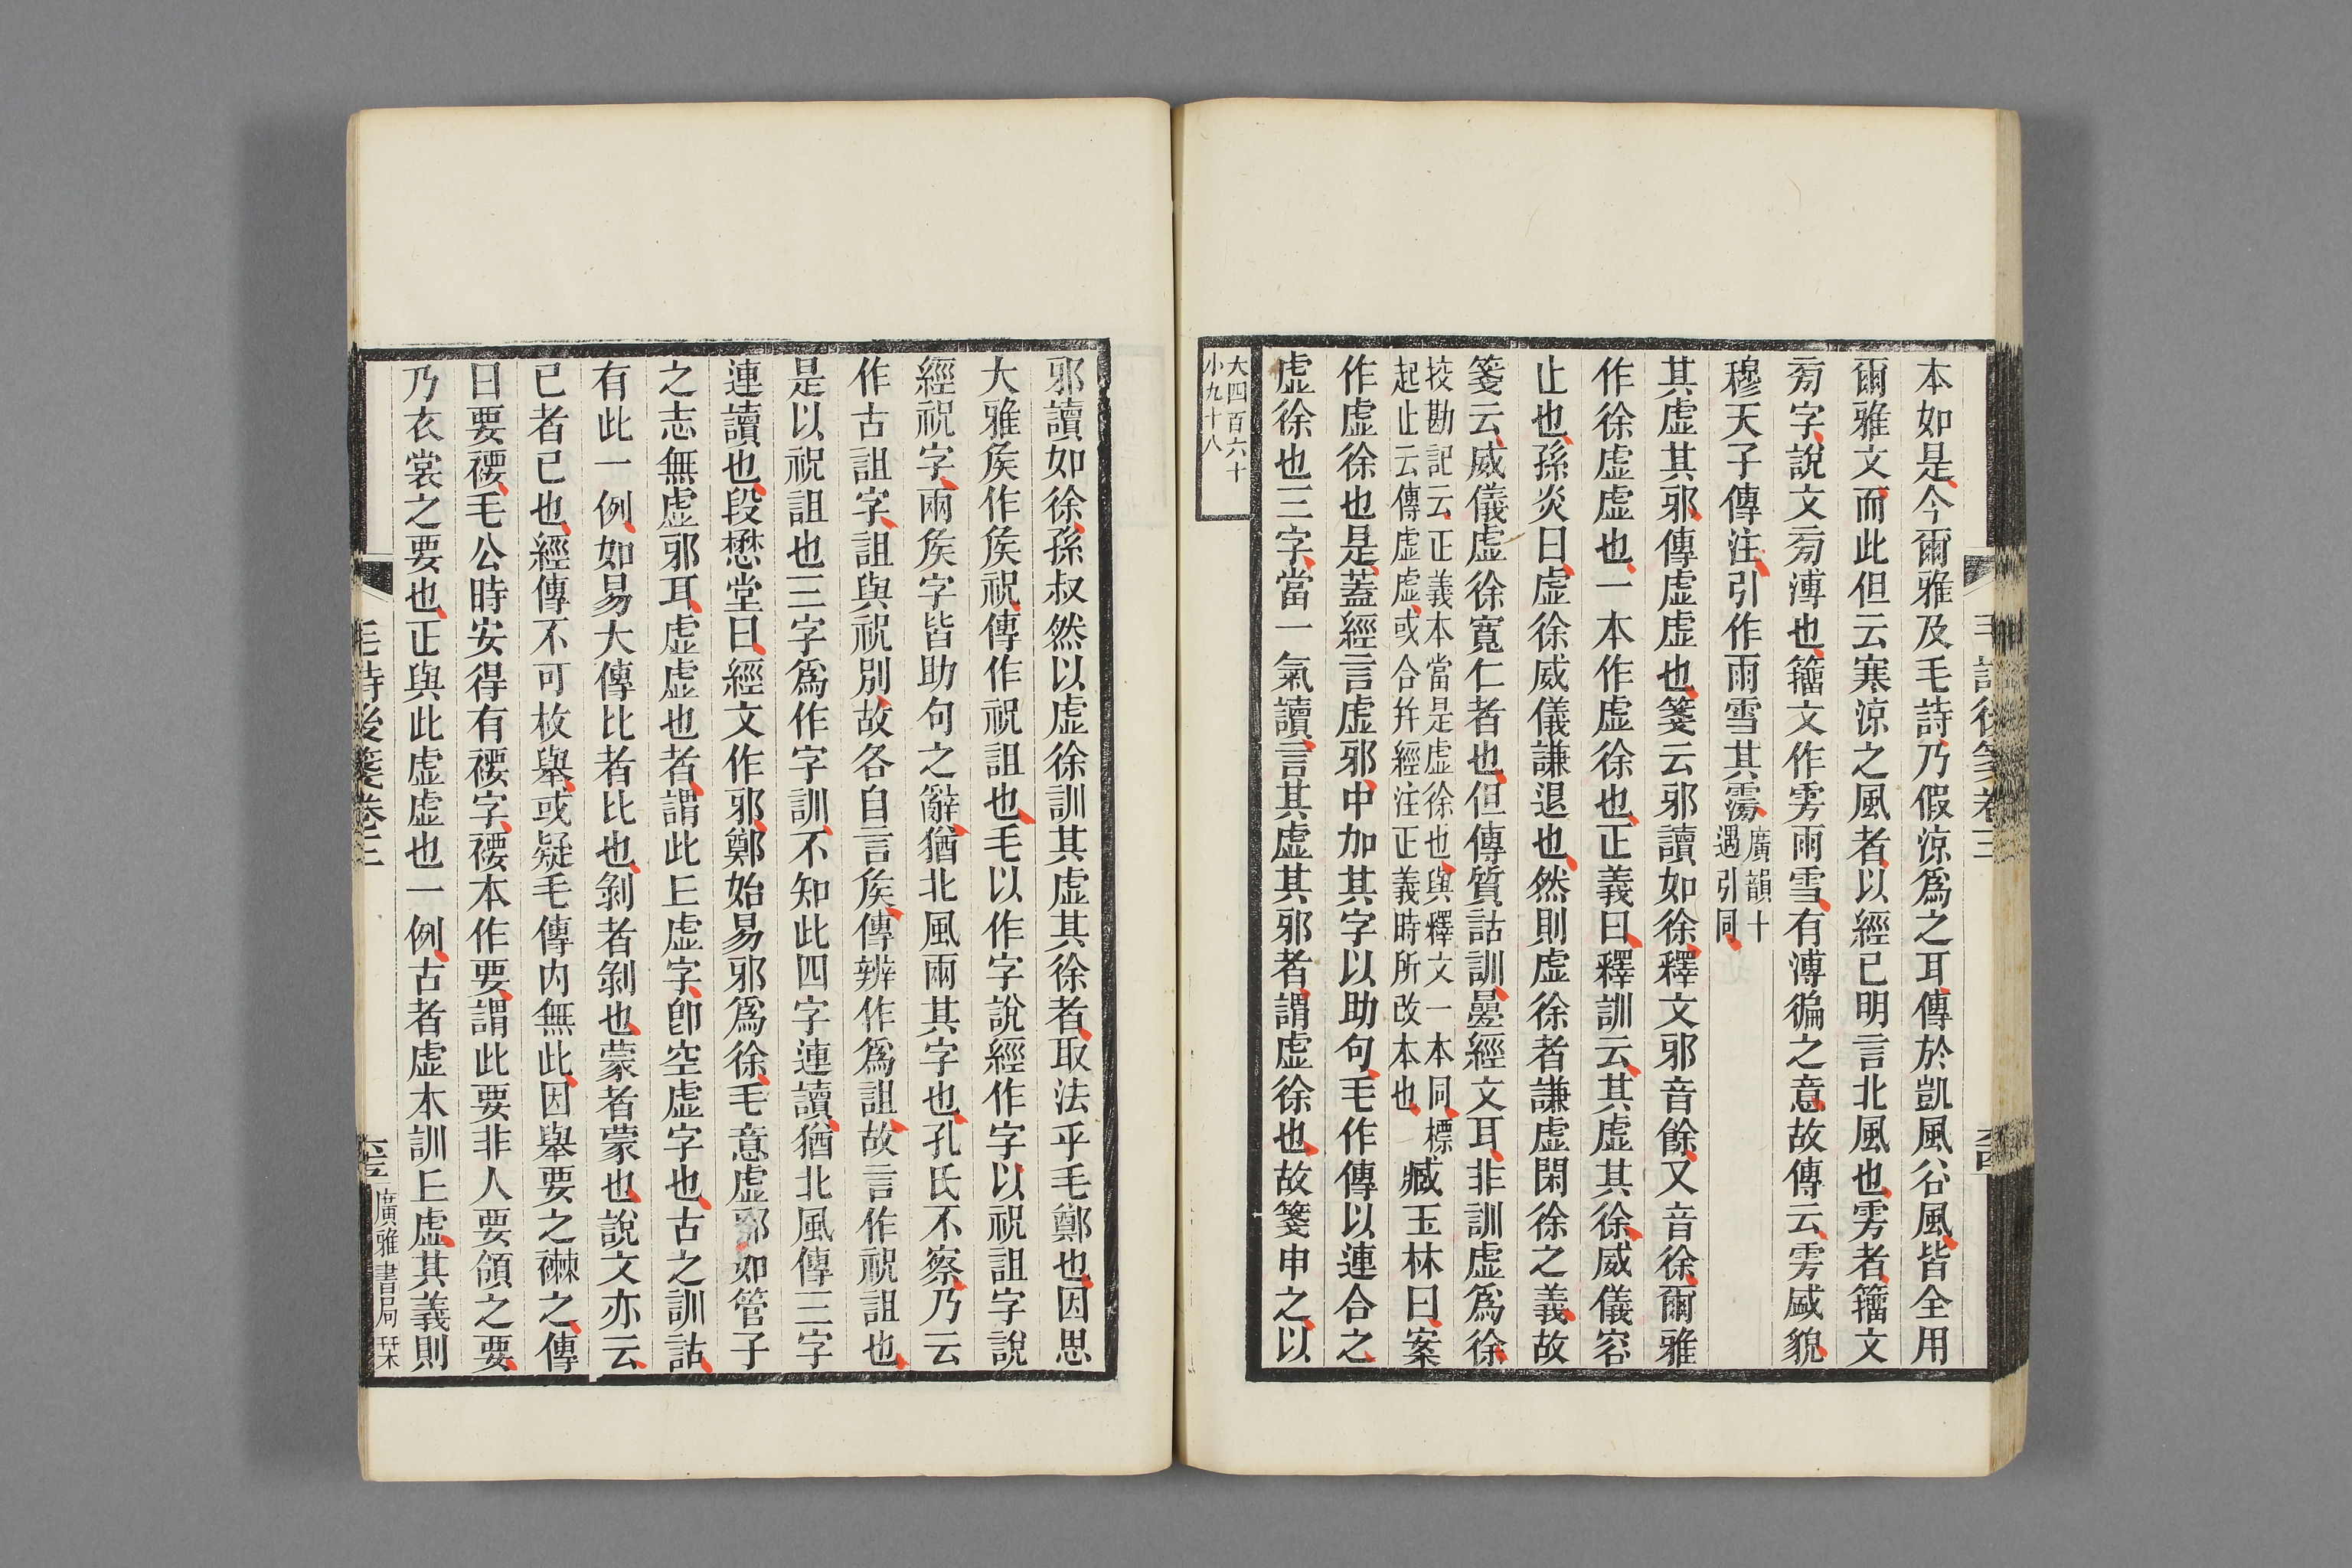 本如是今爾雅及毛詩乃假涼爲之耳傳於凱風谷風皆全用
爾雅文而此但云寒涼之風者以經已明言北風也雱者籒文
㫄字說文㫄溥也籒文作雱雨雪有溥徧之意故傳云雱盛貌
穆天子傳注引作雨雪其霶廣韻十
遇引同
其虚其邪傳虚虚也箋云邪讀如徐釋文邪音餘又音徐爾雅
作徐虚虚也一本作虚徐也正義曰釋訓云其虚其徐威儀容
止也孫炎曰虚徐威儀謙退也然則虚徐者謙虚閑徐之義故
箋云威儀虚徐寬仁者也但傳質詁訓疊經文耳非訓虚爲徐
挍勘記云正義本當是虚徐也與釋文一本同標
起止云傳虚虚或合幷經注正義時所改本也
臧玉林曰案
作虚徐也是蓋經言虚邪中加其字以助句毛作傳以連合之
虚徐也三字當一氣讀言其虚其邪者謂虚徐也故箋申之以
大四百六十
小九十八
毛詩後箋卷三
邪讀如徐孫叔然以虚徐訓其虚其徐者取法乎毛鄭也因思
大雅矦作矦祝傳作祝詛也毛以作字說經作字以祝詛字說
經祝字兩矦字皆助句之辭猶北風兩其字也孔氏不察乃云
作古詛字詛與祝別故各自言矦傳辨作爲詛故言作祝詛也
是以祝詛也三字爲作字訓不知此四字連讀猶北風傳三字
連讀也段懋堂曰經文作邪鄭始易邪爲徐毛意虚邪如管子
之志無虚邪耳虚虚也者謂此丘虚字卽空虚字也古之訓詁
有此一例如易大傳比者比也剝者剝也蒙者蒙也說文亦云
已者已也經傳不可枚舉或疑毛傳内無此因舉要之襋之傳
曰要䙅毛公時安得有䙅字䙅本作要謂此要非人要領之要
乃衣裳之要也正與此虚虚也一例古者虚本訓丘虚其義則
毛詩後箋卷三
廣雅書局栞